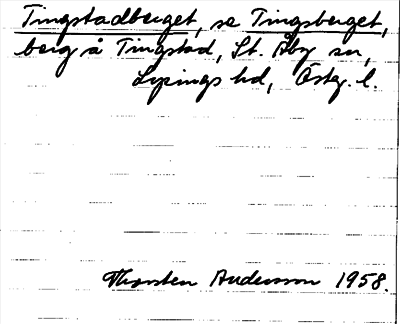 Tingstadberget, se Tingsberget,
berg å Tingstad, St. Åby sn,
Lysings hd, Östg. l.
Thorsten Andersson 1958.